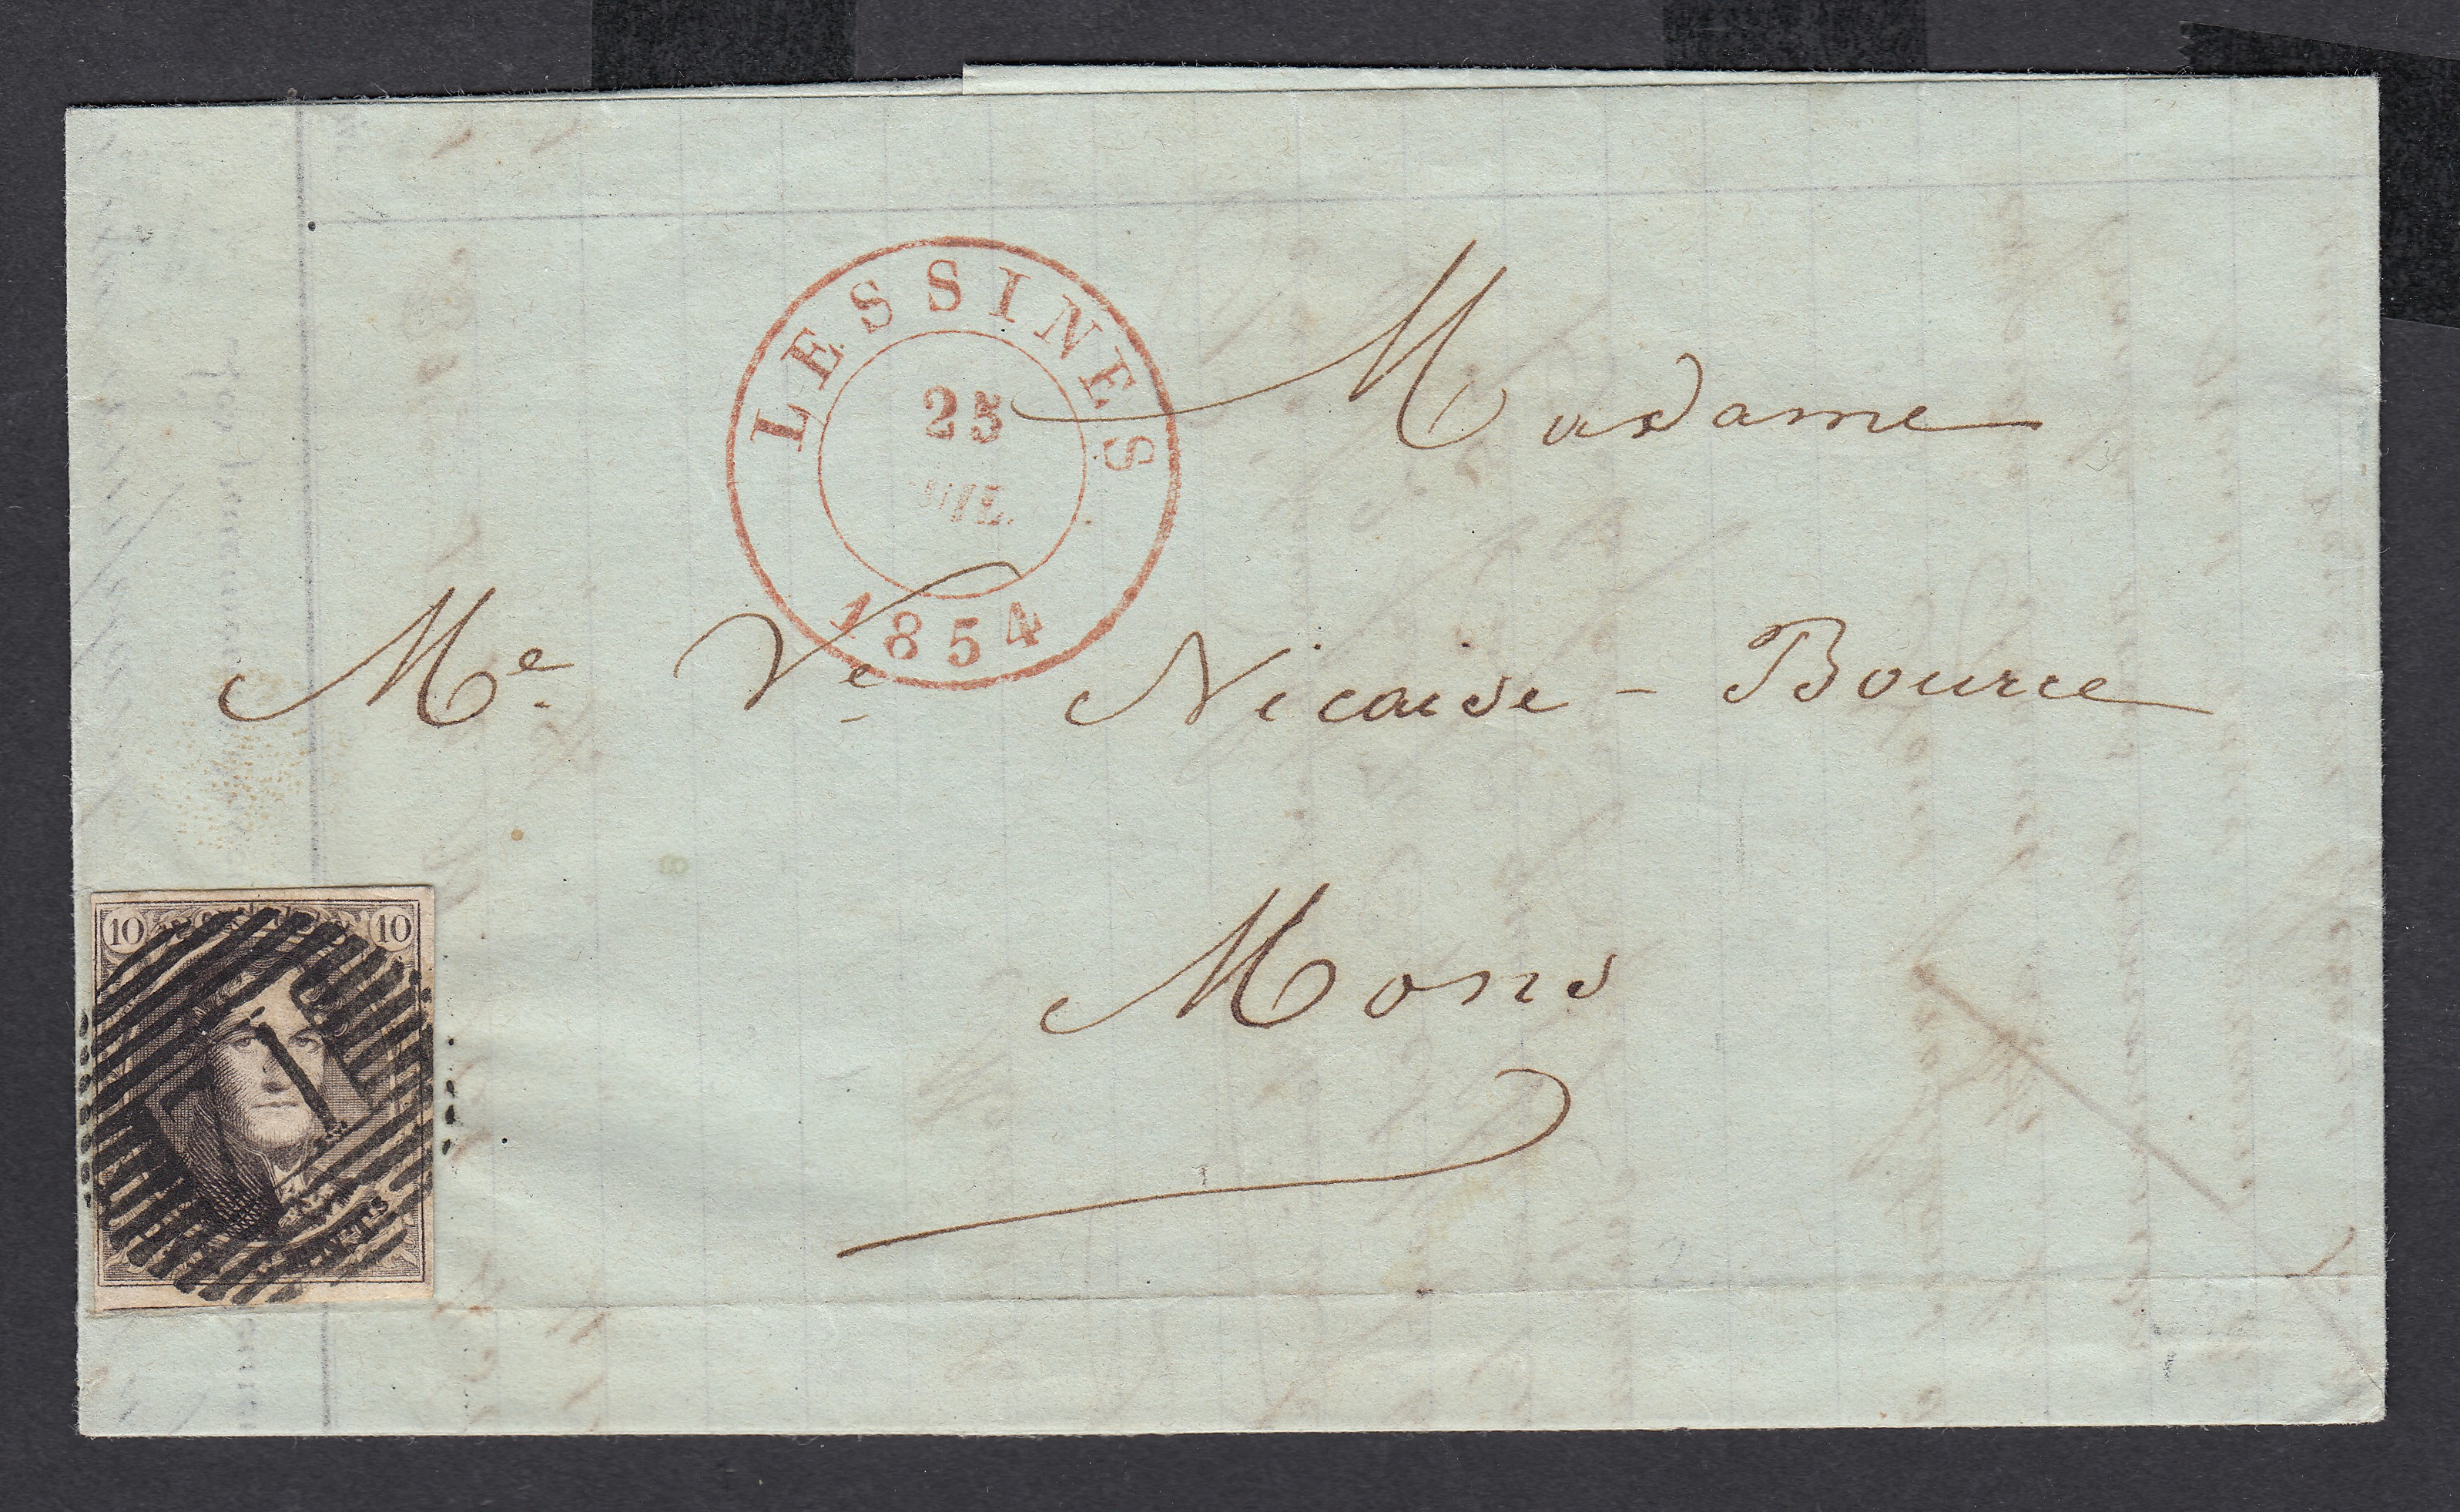 LESSINES
25
1854
Madame
Me. Ve Nicaise - Bourie
Mons
10 10